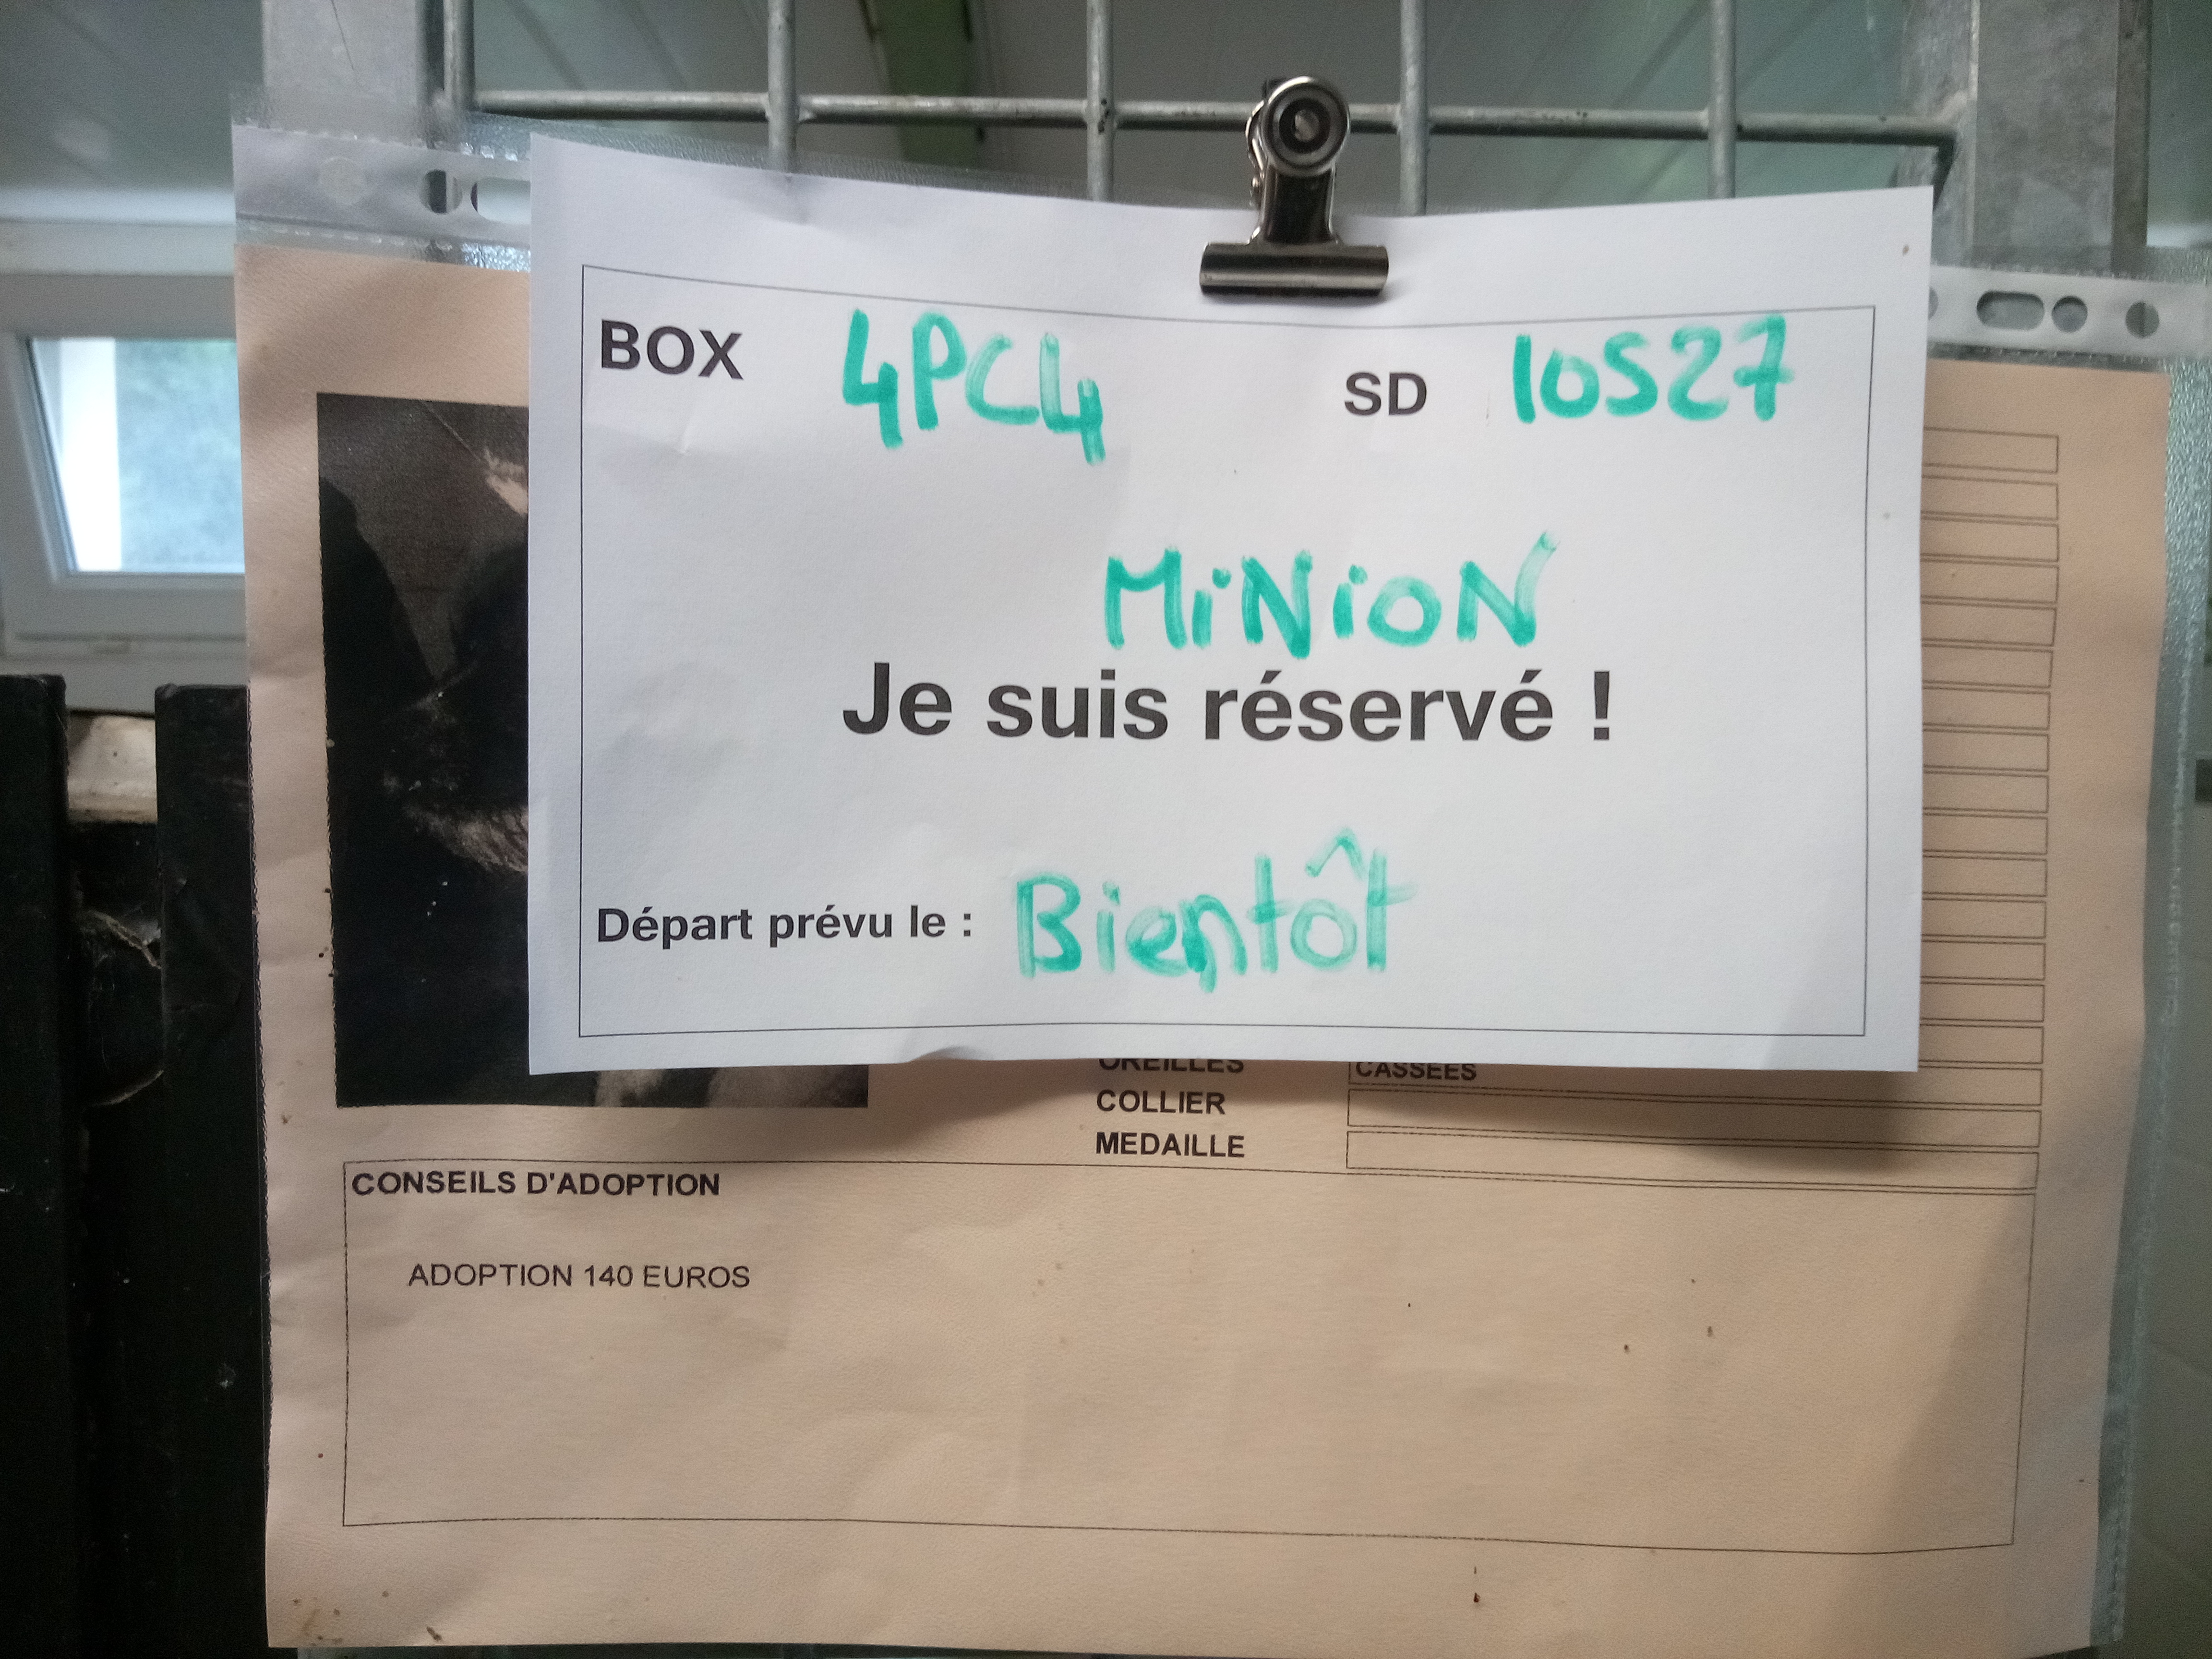 BOX 4PC4 SD 10527
MiNioN
Je suis réservé !
Départ prévu le : Bientôt
OREILLES CASSEES
COLLIER
MEDAILLE
CONSEILS D'ADOPTION
ADOPTION 140 EUROS